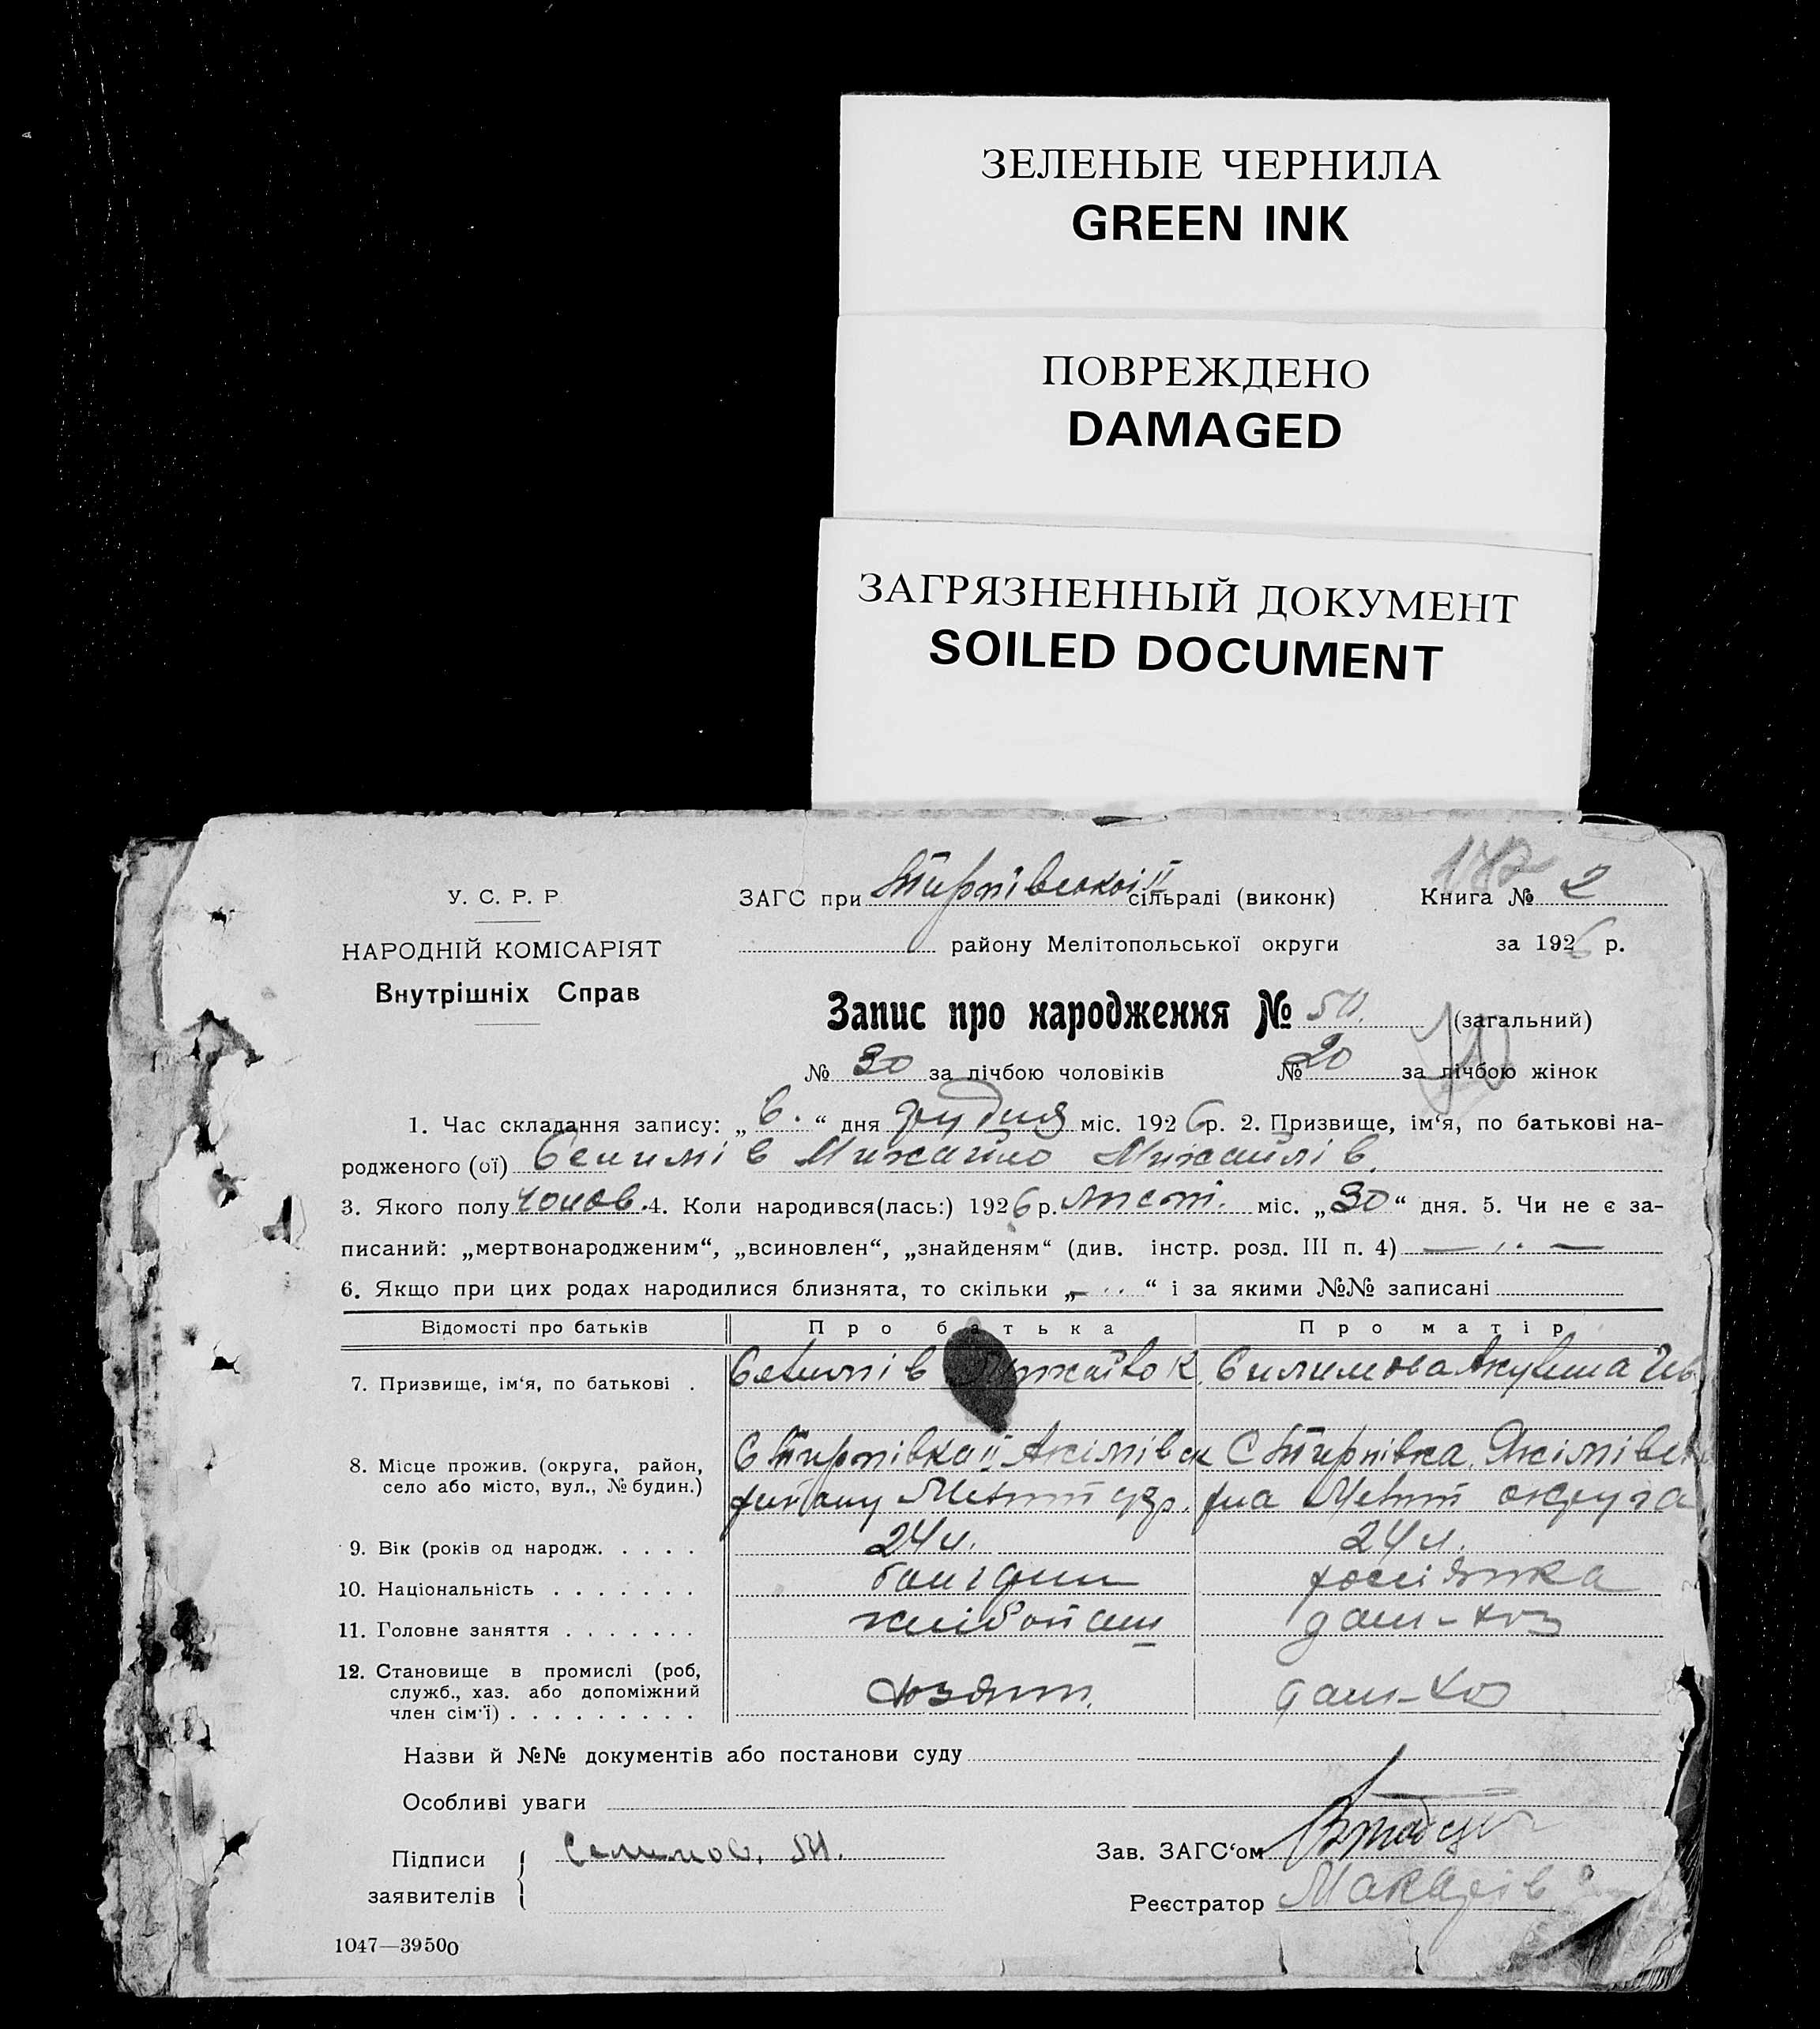 ЗЕЛЕНЫЕ ЧЕРНИЛА
GREEN INK
ПОВРЕЖДЕНО
DAMAGED
ЗАГРЯЗНЕННЫЙ ДОКУМЕНТ
SOILED DOCUMENT
У. С. Р. Р
НАРОДНІЙ КОМІСАРІЯТ
Внутрішніх Справ
ЗАГС при сільраді (виконк)
району Мелітопольської округи
Книга № 2
за 1926 р.
Запис про народження № 50. (загальний)
№ 30 за лічбою чоловіків № 20 за лічбою жінок
1. Час складання запису: „ 6. “ дня грудня міс. 1926 р. 2. Призвище, ім‘я, по батькові на-
родженого (ої) Селимів Михайло Михайлів.
3. Якого полу чолов. 4. Коли народився(лась:) 1926 р. лист. міс. „ 30 “ дня. 5. Чи не є за-
писаний: „мертвонародженим“, „всиновлен“, „знайденям“ (див. інстр. розд. III п. 4)
6. Якщо при цих родах народилися близнята, то скільки „ “ і за якими №№ записані
Відомості про батьків Про батька Про матір
7. Призвище, ім‘я, по батькові . Селимів Михайло К. Силимова Акулина Ів.
8. Місце прожив. (округа, район,
село або місто, вул., № будин.)
9. Вік (років од народж. . . . . 24 л. 24 л.
10. Національність . . . . . . . болгарин росіянка
11. Головне заняття . . . . . . . хлібопаш дом-хоз
12. Становище в промислі (роб,
служб., хаз. або допоміжний
член сім‘ї) . . . . . . . . . хозяин. дом-хоз
Назви й №№ документів або постанови суду
Особливі уваги
Підписи
заявителів
Селимов. М.
Зав. ЗАГС‘ом
Реєстратор Макарів
1047—39500